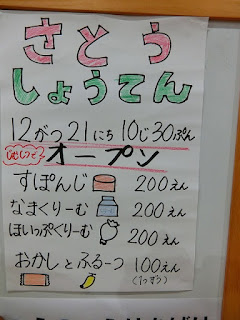 さとう
しょうてん
12がつ21にち10じ30ぷん
オープン
すぽんじ 200えん
なまくりーむ 200えん
ほいっぷくりーむ 200えん
おかしとふるーつ 100えん
(1つずつ)